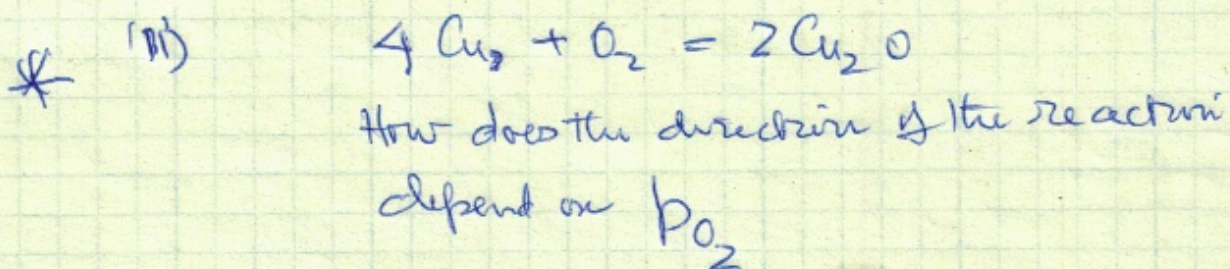 * (B1) 4 Cu, + O₂ = 2 Cu₂ O
How does the direction of the reaction
depend on pO₂